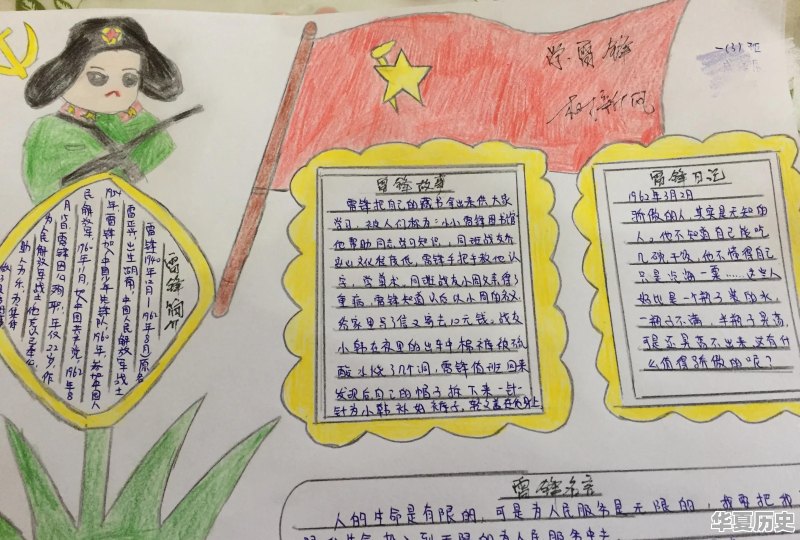 学雷锋
树新风
一(3)班
雷锋简介
雷锋(1940年12月—1962年8月)原名
雷正兴出生湖南,中国人民解放军战士
1954年雷锋加入中国少年先锋队,1960年参加中国人
民解放军,1960年11月加入中国共产党,1962年8
月15日雷锋因公殉职,年仅22岁,作
为人民解放军战士
助人为乐,为集体
雷锋故事
雷锋把自己的藏书拿出来供大家
学习,被人们称为:"小小雷锋图书馆
他帮助同志学习知识,同班战友乔
安山文化程度低,雷锋手把手教他认
字,学算术,同班战友小周父亲得了
重病,雷锋知道以后以小周的名义
给家里写了信又寄去10元钱。战友
小韩在夜里的出车中棉裤被硫
酸水烧了几个洞,雷锋值班回来
发现后自己的帽子拆下来一针一
针为小韩补好裤子,轻轻盖在他身上
雷锋日记
1962年3月2日
骄傲的人,其实是无知的
人。他不知道自己能吃
几碗干饭,他不懂得自己
只是沧海一粟……这些人
好比是一个瓶子装的水,
一瓶子不满,半瓶子晃荡,
可是还晃荡不出来,这有什
么值得骄傲的呢?
雷锋名言
人的生命是有限的,可是为人民服务是无限的,我要把我
到无限的为人民服务中去
华夏历史